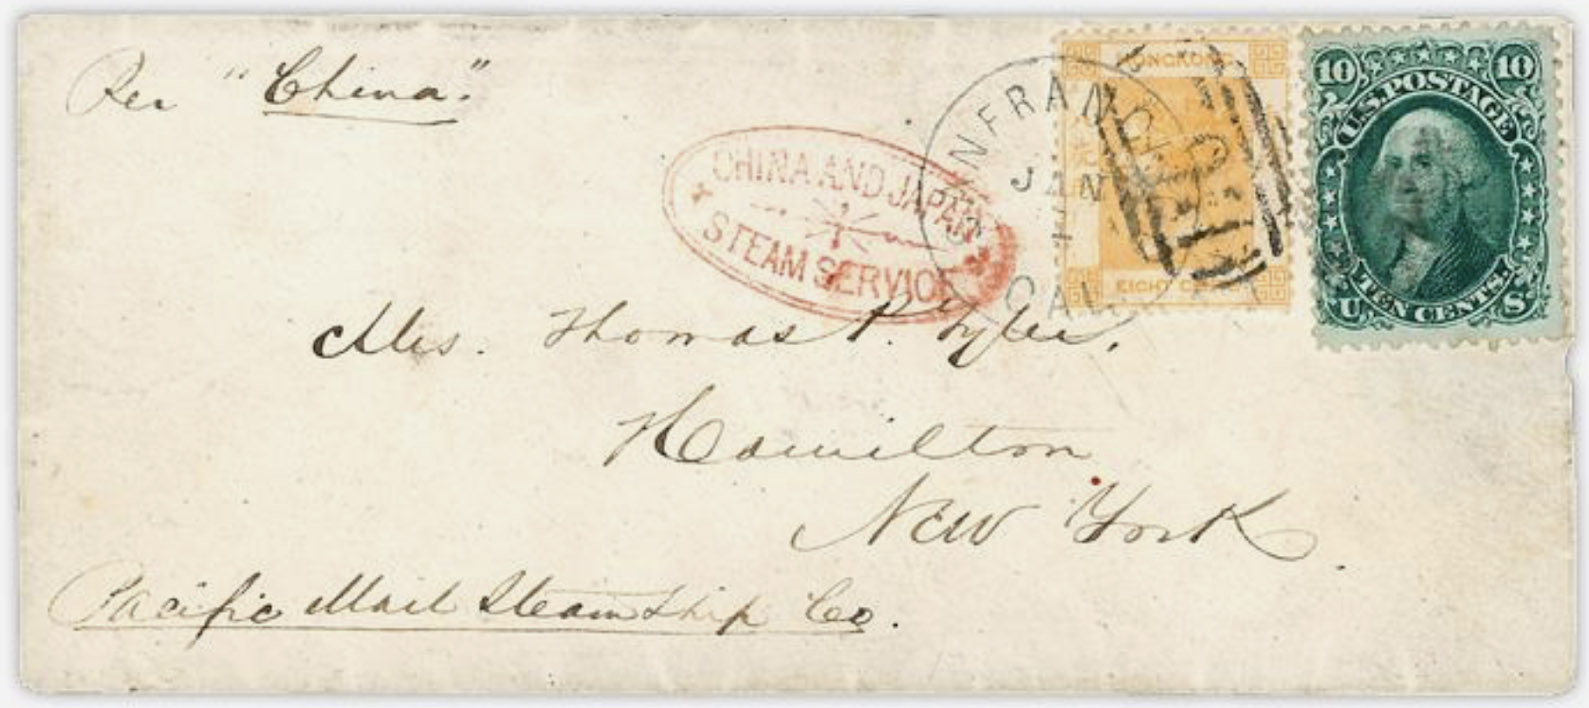 Per "China."
HONGKONG
10 10
U.S. POSTAGE
CHINA AND JAPAN
STEAM SERVICE
N FRAN
JAN
CAL
EIGHT
TEN CENTS.
U S
Mrs. Thomas P. Tyler.
Hamilton
New York.
Pacific Mail Steam Ship Co.